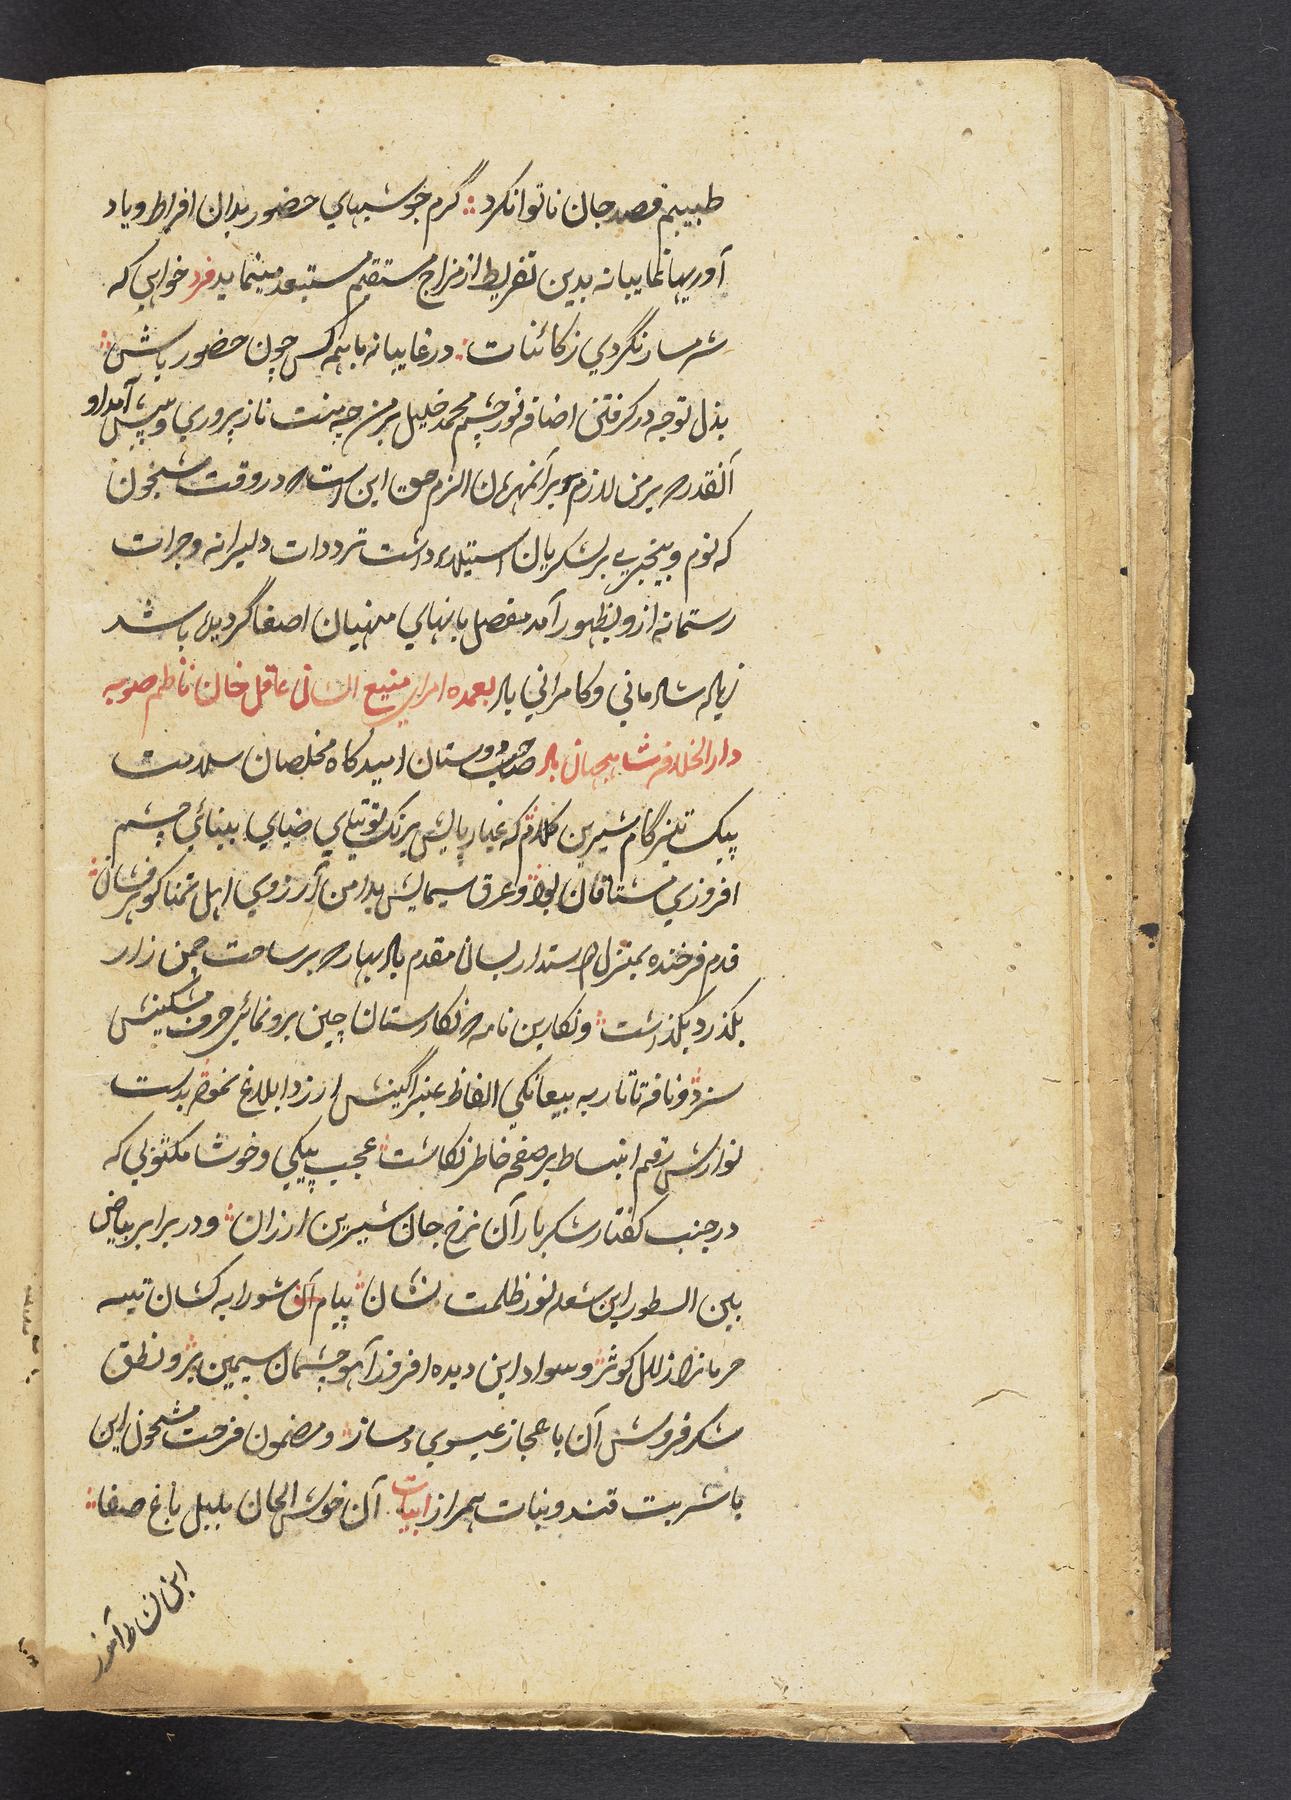 طبیبم قصد جان ناتوان کرد گرم جوشیهای حضور بدان افراط و یاد
آوریها نمایبانه بدین تفریط از مزاج مستقیم مستبعد مینماید فرد خواهی که
شرمسار نگردی ز کائنات در غایبانه با همه کس چون حضور باش
بذل توجه در کرفتن اضافه نور چشم محمد خلیل بر من چه منت ناز پروری و پیش آمد او
آنقدر که بر من لازم بر آنمهربان الزم حق این است که در وقت شبخون
که نوم و بیخبری بر لشکریان استیلا داشت ترددات دلیرانه و جرات
رستمانه ازو بظهور آمد مفصل بانهای منهیان اصغا گردیده باشد
زیاده شادمانی و کامرانی باد بعمده امرای منیع الشان عاقل خان ناظم صوبه
دار الخلافه شاهجهان باد صاحب دوستان امیدگاه مخلصان سلامت
پیک تیزگام شیرین کلام که غبار پایش برنک توتیای ضیای بینائی چشم
افروزی مشتاقان بود و عرق سیمایش بدامن آرزوی اهل تمنا کوهر فشان
قدم فرخنده بمنزل دوستدار بسان مقدم باد بهار که بر ساحت چمن زار
بکذرد بکذاشت و نکارین نامه که نکارستان چین برونمائی حرف مشکینش
سزد و نافه تاتار به بیعانکی الفاظ عنبر اکینش ارزد ابلاغ نموده بدست
نوازش رقم انبساط بر صفحه خاطر نکاشت عجب پیکی و خوشا مکتوبی که
در جنب کفتار شکر بار آن نرخ جان شیرین ارزان و در برابر بیاض
بین السطور این شعله نور ظلمت نشان پیام آن شورابه کشان تیه
حرمانرا زلال کوثر و سواد این دیده افروز آهو چشمان سیمین بر و نطق
شکر فروش آن با عجاز عیسوی دمساز و مضمون فرحت مشحون این
با شربت قند و نبات همراز ابیات آن خوش الحان بلبل باغ صفا
این نشاط آموز